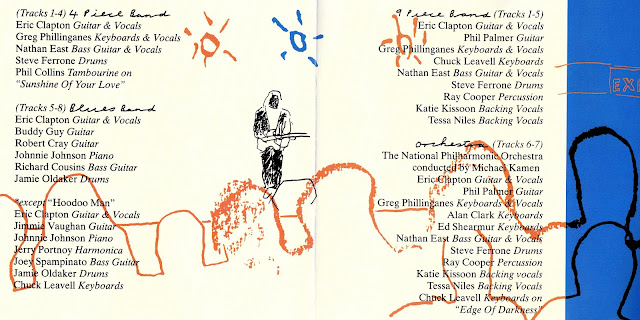 (Tracks 1-4) 4 Piece Band
Eric Clapton Guitar & Vocals
Greg Phillinganes Keyboards & Vocals
Nathan East Bass Guitar & Vocals
Steve Ferrone Drums
Phil Collins Tambourine on
"Sunshine Of Your Love"
(Tracks 5-8) Blues Band
Eric Clapton Guitar & Vocals
Buddy Guy Guitar
Robert Cray Guitar
Johnnie Johnson Piano
Richard Cousins Bass Guitar
Jamie Oldaker Drums
*except "Hoodoo Man"
Eric Clapton Guitar & Vocals
Jimmie Vaughan Guitar
Johnnie Johnson Piano
Jerry Portnoy Harmonica
Joey Spampinato Bass Guitar
Jamie Oldaker Drums
Chuck Leavell Keyboards
9 Piece Band (Tracks 1-5)
Eric Clapton Guitar & Vocals
Phil Palmer Guitar
Greg Phillinganes Keyboards & Vocals
Chuck Leavell Keyboards
Nathan East Bass Guitar & Vocals
Steve Ferrone Drums
Ray Cooper Percussion
Katie Kissoon Backing Vocals
Tessa Niles Backing Vocals
Orchestra (Tracks 6-7)
The National Philharmonic Orchestra
conducted by Michael Kamen
Eric Clapton Guitar & Vocals
Phil Palmer Guitar
Greg Phillinganes Keyboards & Vocals
Alan Clark Keyboards
Ed Shearmur Keyboards
Nathan East Bass Guitar & Vocals
Steve Ferrone Drums
Ray Cooper Percussion
Katie Kissoon Backing vocals
Tessa Niles Backing Vocals
Chuck Leavell Keyboards on
"Edge Of Darkness"